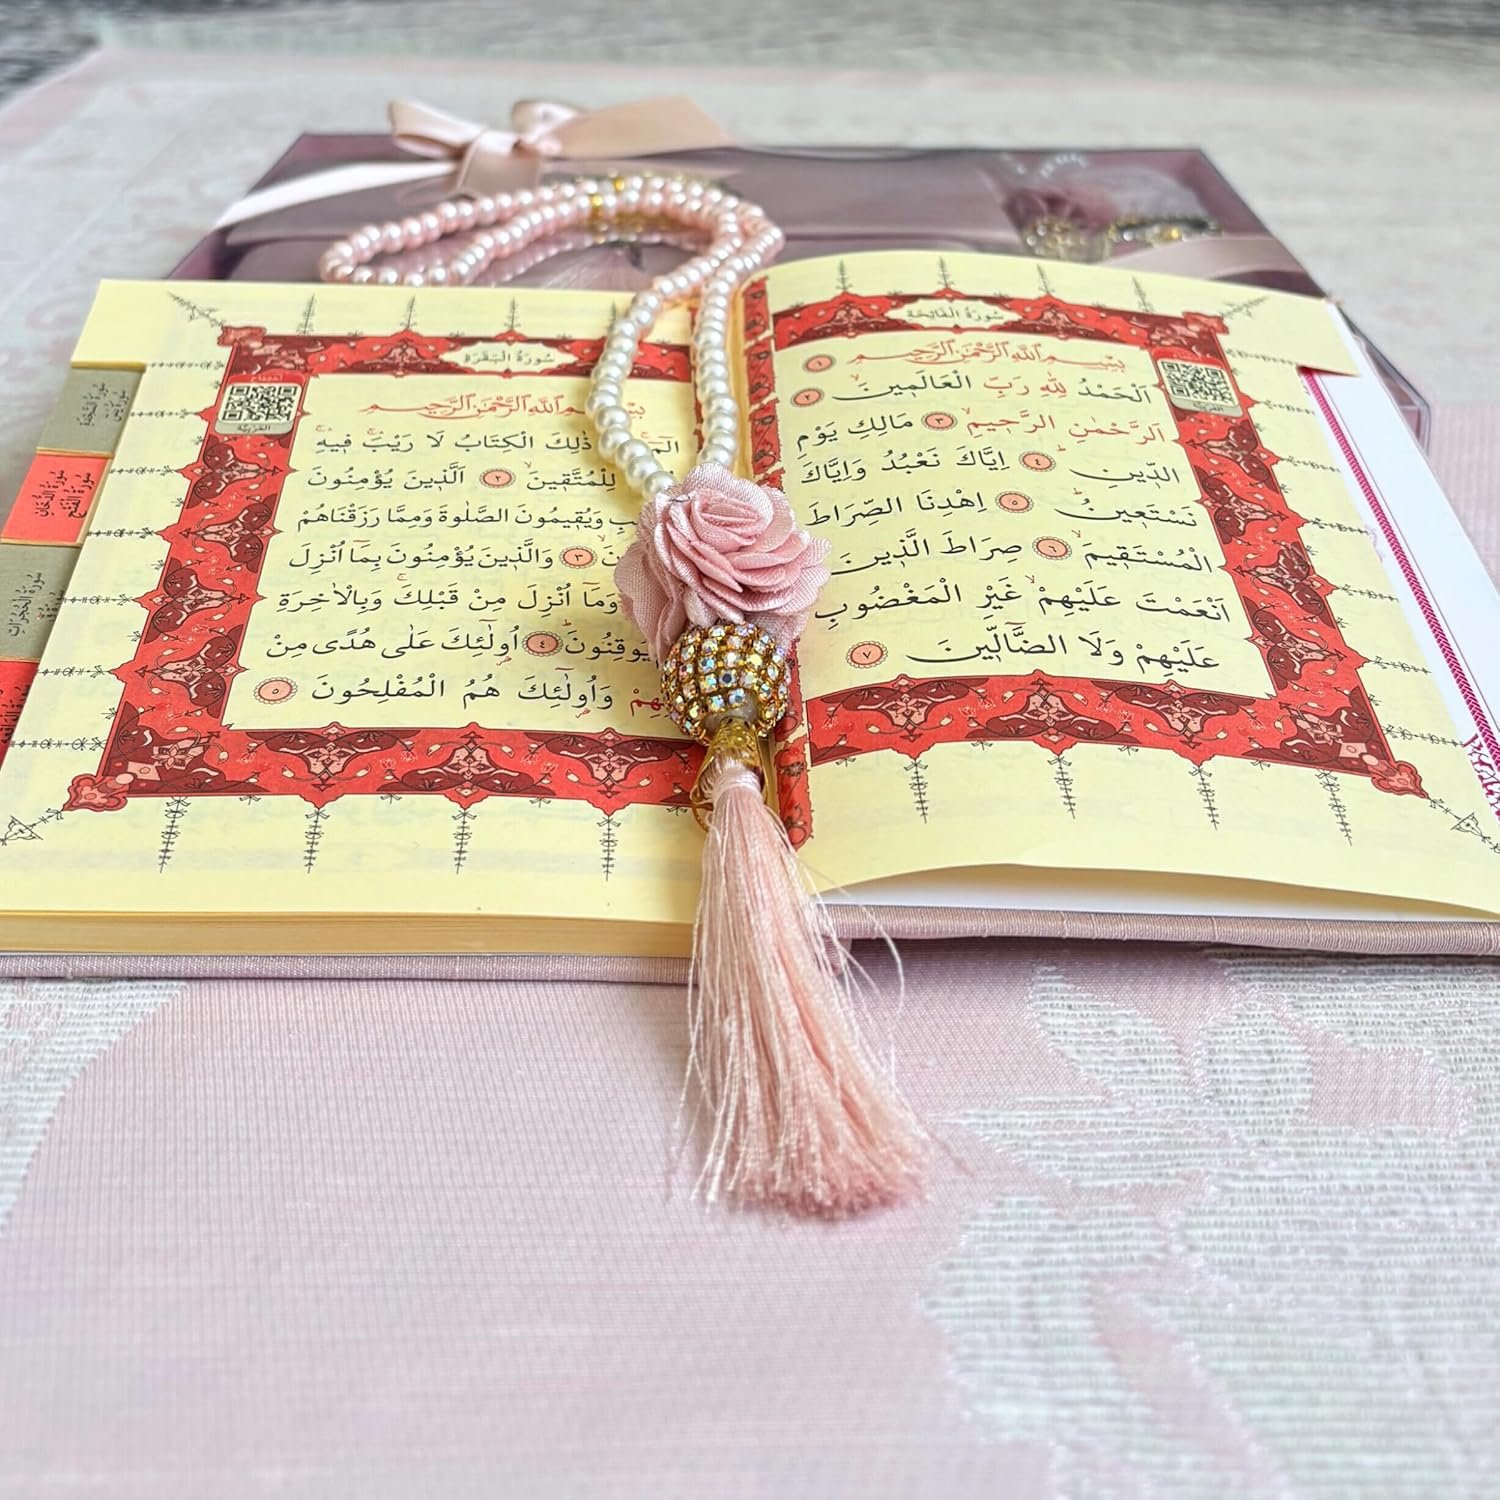 سُورَةُ الْفَاتِحَةِ
بِسْمِ اللّٰهِ الرَّحْمٰنِ الرَّحِيمِ ١
اَلْحَمْدُ لِلّٰهِ رَبِّ الْعَالَمِينَ ٢
اَلرَّحْمٰنِ الرَّحِيمِ ٣ مَالِكِ يَوْمِ
الدِّينِ ٤ اِيَّاكَ نَعْبُدُ وَاِيَّاكَ
نَسْتَعِينُ ٥ اِهْدِنَا الصِّرَاطَ
الْمُسْتَقِيمَ ٦ صِرَاطَ الَّذِينَ
اَنْعَمْتَ عَلَيْهِمْ غَيْرِ الْمَغْضُوبِ
عَلَيْهِمْ وَلَا الضَّٓالِّينَ ٧
العربية
سُورَةُ الْبَقَرَةِ
بِسْمِ اللّٰهِ الرَّحْمٰنِ الرَّحِيمِ
ذٰلِكَ الْكِتَابُ لَا رَيْبَ فِيهِ
لِلْمُتَّقِينَ ٢ اَلَّذِينَ يُؤْمِنُونَ
وَيُقِيمُونَ الصَّلٰوةَ وَمِمَّا رَزَقْنَاهُمْ
٣ وَالَّذِينَ يُؤْمِنُونَ بِمَٓا اُنْزِلَ
وَمَٓا اُنْزِلَ مِنْ قَبْلِكَ وَبِالْاٰخِرَةِ
يُوقِنُونَ ٤ اُو۬لٰٓئِكَ عَلٰى هُدًى مِنْ
وَاُو۬لٰٓئِكَ هُمُ الْمُفْلِحُونَ ٥
العربية
سُورَةُ الدُّخَانِ
سُورَةُ الْفَتْحِ
سُورَةُ الْحُجُرَاتِ